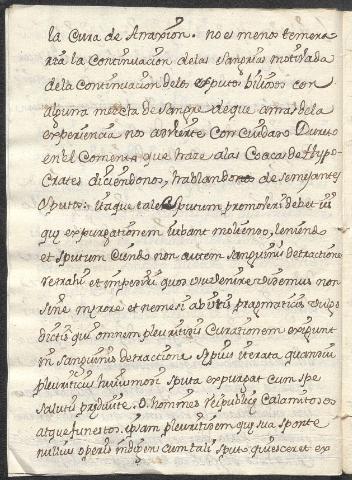 la Cura de Anaxion. no es menos temera
ria la Continuacion delas sangrias motivada
dela Continuacion delos esputos biliosos con
alguna mezcla de sangre deque amas dela
experiencia nos advierte con cuidado Dureto
en el Coment. que haze alas Coacas de Hypo
Crates diciendonos, hablando de semejantes
Sputos: Itaque tale Sputum promoveri debet iis
que expurgationem iubant moliendo, leniendo
et sputum ciendo non autem sanguinis detractione
retrahi et impediri quod
sine merore et nemesi
dictis qui omnem pleuritidis Curationem exigunt
in sanguinis detractione sepius iterata quamvis
pleuriticus humorem sputa expurgat cum spe
salutis O homines reipublice Calamitosos
atque funestos. ipsam pleuritidem que sua sponte
nullius operis indigens cum tali sputo quiesceret ex